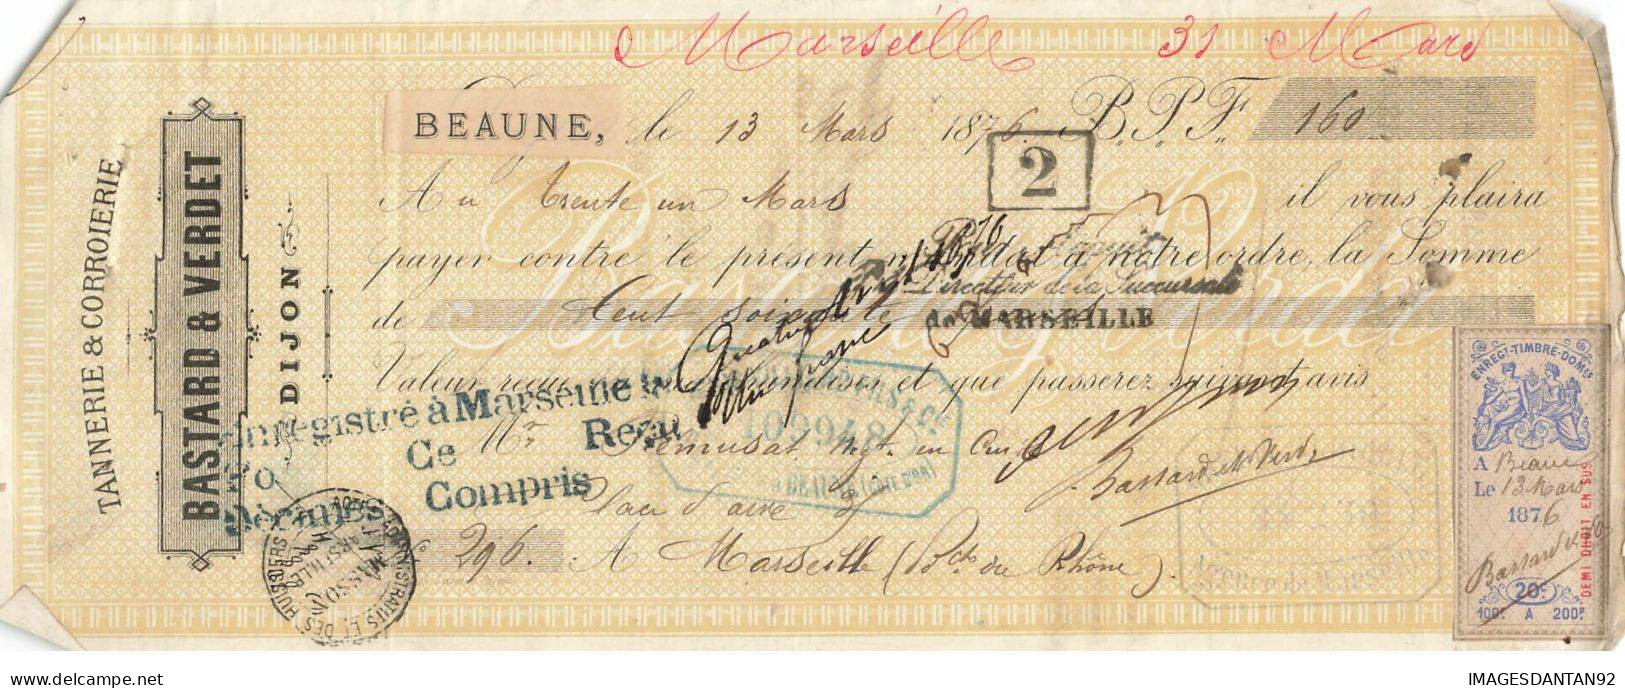 Marseille 31 Mars
BEAUNE, le 13 Mars 1876 B.P.F. 160
2
Au trente un Mars il vous plaira
payer contre le présent mandat à notre ordre, la Somme
de Cent soixante
Directeur de la Succursale
de MARSEILLE
Valeur reçue en marchandises et que passerez suivant avis
Enregistré à Marseille le
Reçu
Ce
Compris
Décimes
109948
BEAUNE (CÔTE D'OR)
Mr Remusat Ngt en Cuirs
Place d'aix
Bastard & Verdet
No 296. A Marseille (Bches du Rhône).
TANNERIE & CORROIERIE
BASTARD & VERDET
DIJON
MASSON
MARSEILLE
ENREGt-TIMBRE-DOMes
A Beaune
Le 13 Mars
1876
Bastard &
20c
100F A 200F
DEMI DROIT EN SUS
IMAGESDANTAN92